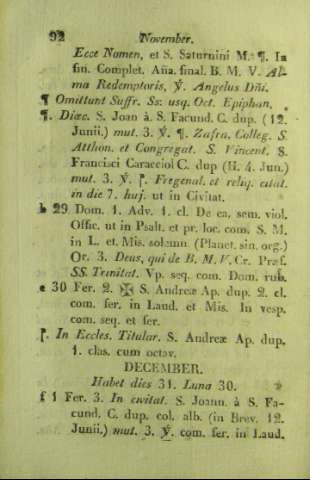 92 November.
Ecce Nomen, et S. Saturnini M. ¶. In
fin. Complet. Aña. final. B. M. V. Al-
ma Redemptoris, ℣. Angelus Dñi.
¶ Omittunt Suffr. Ss: usq. Oct. Epiphan.
¶. Diœc. S. Joan à. S. Facund. C. dup. (12.
Junii.) mut. 3. ℣. ¶. Zafra, Colleg. S.
Atthon. et Congregat. S. Vincent. S.
Francisci Caracciol C. dup (H. 4. Jun.)
mut. 3. ℣. Fregenal. et reliq. citat.
in die 7. huj. ut in Civitat.
b 29 Dom. 1. Adv. 1. cl. De ea, sem. viol.
Offic. ut in Psalt. et pr. loc. com. S. M.
in L. et. Mis. solemn. (Planet. sin. org.)
Or. 3. Deus, qui de B. M. V. Cr. Præf.
SS. Trinitat. Vp. seq. com. Dom. rub.
e 30 Fer. 2. ✠ S. Andreæ Ap. dup. 2. cl.
com. fer. in Laud. et Mis. In vesp.
com. seq. et fer.
In Eccles. Titular. S. Andreæ Ap. dup.
1. clas. cum octav.
DECEMBER.
Habet dies 31. Luna 30.
f 1 Fer. 3. In civitat. S. Joann. à S. Fa-
cund. C. dup. col. alb. (in Brev. 12.
Junii.) mut. 3. ℣. com. fer. in Laud.